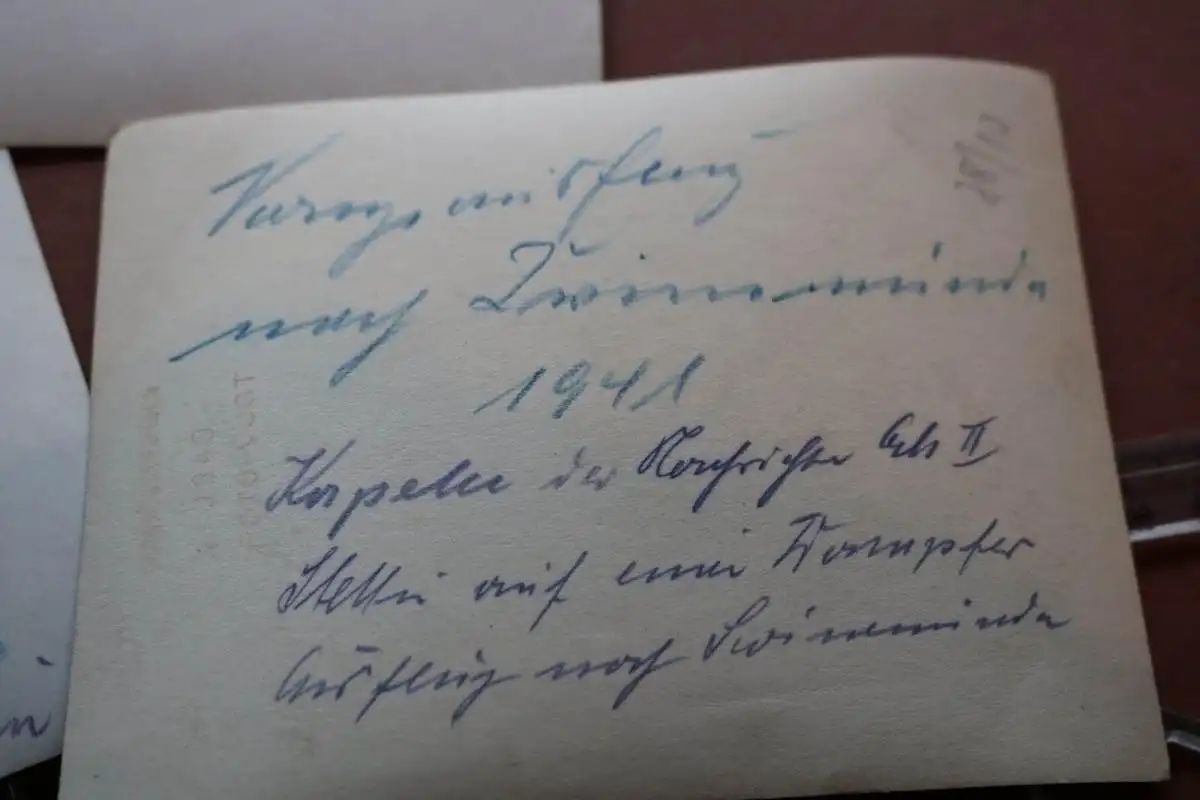 ausflug
nach Swinemünde
1941
Kapelle der Nachrichten Ers II
Stettin auf einer Dampfer
Ausflug nach Swinemünde